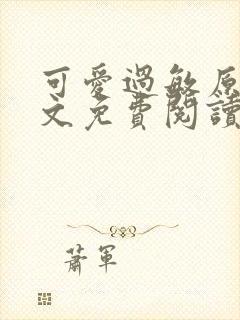 可愛過敏原
文免費閱讀
蕭軍